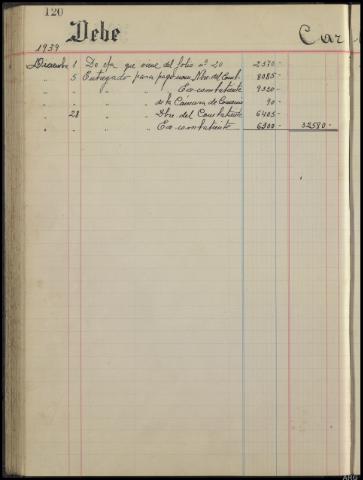 120
Debe
Car
1939
Dicembre 1 De cta que viene del folio nº 20 2370-
" 5 Entregado para pago nom. Nbre del Comb. 8085-
" " " " Ex-combatiente 9320-
de la Cámara de Comercio 90-
" 28 " " " Nbre del Combatiente 6405-
" " " " Ex-combatiente 6300- 32580-